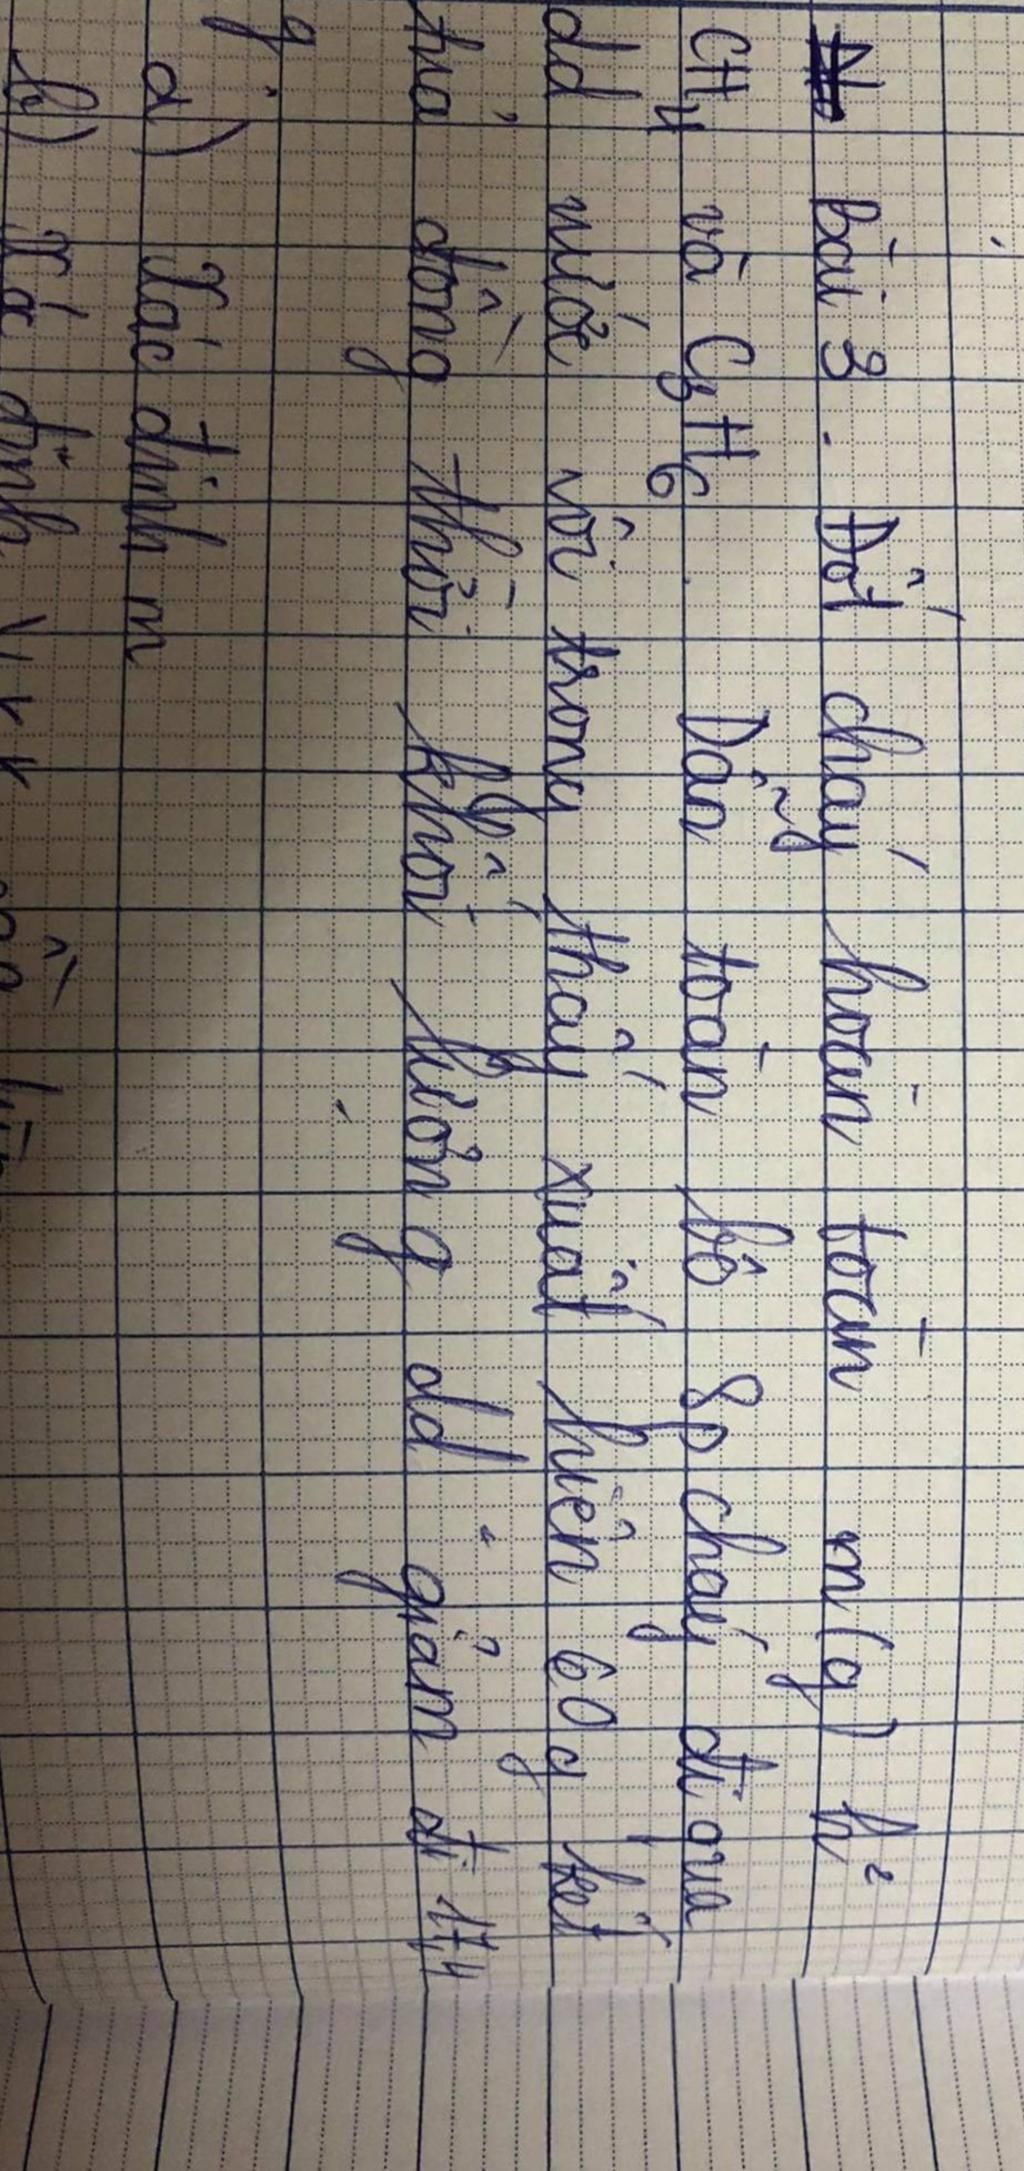 bài 3. Đốt cháy hoàn toàn m(g) h²
CH₄ và C₃H₆. Dẫn toàn bộ sp cháy đi qua
dd nước vôi trong thấy xuất hiện 60 g kết
tủa đồng thời khối lượng dd giảm đi 17,4
g.
a) Xác định m
b) Xác định V